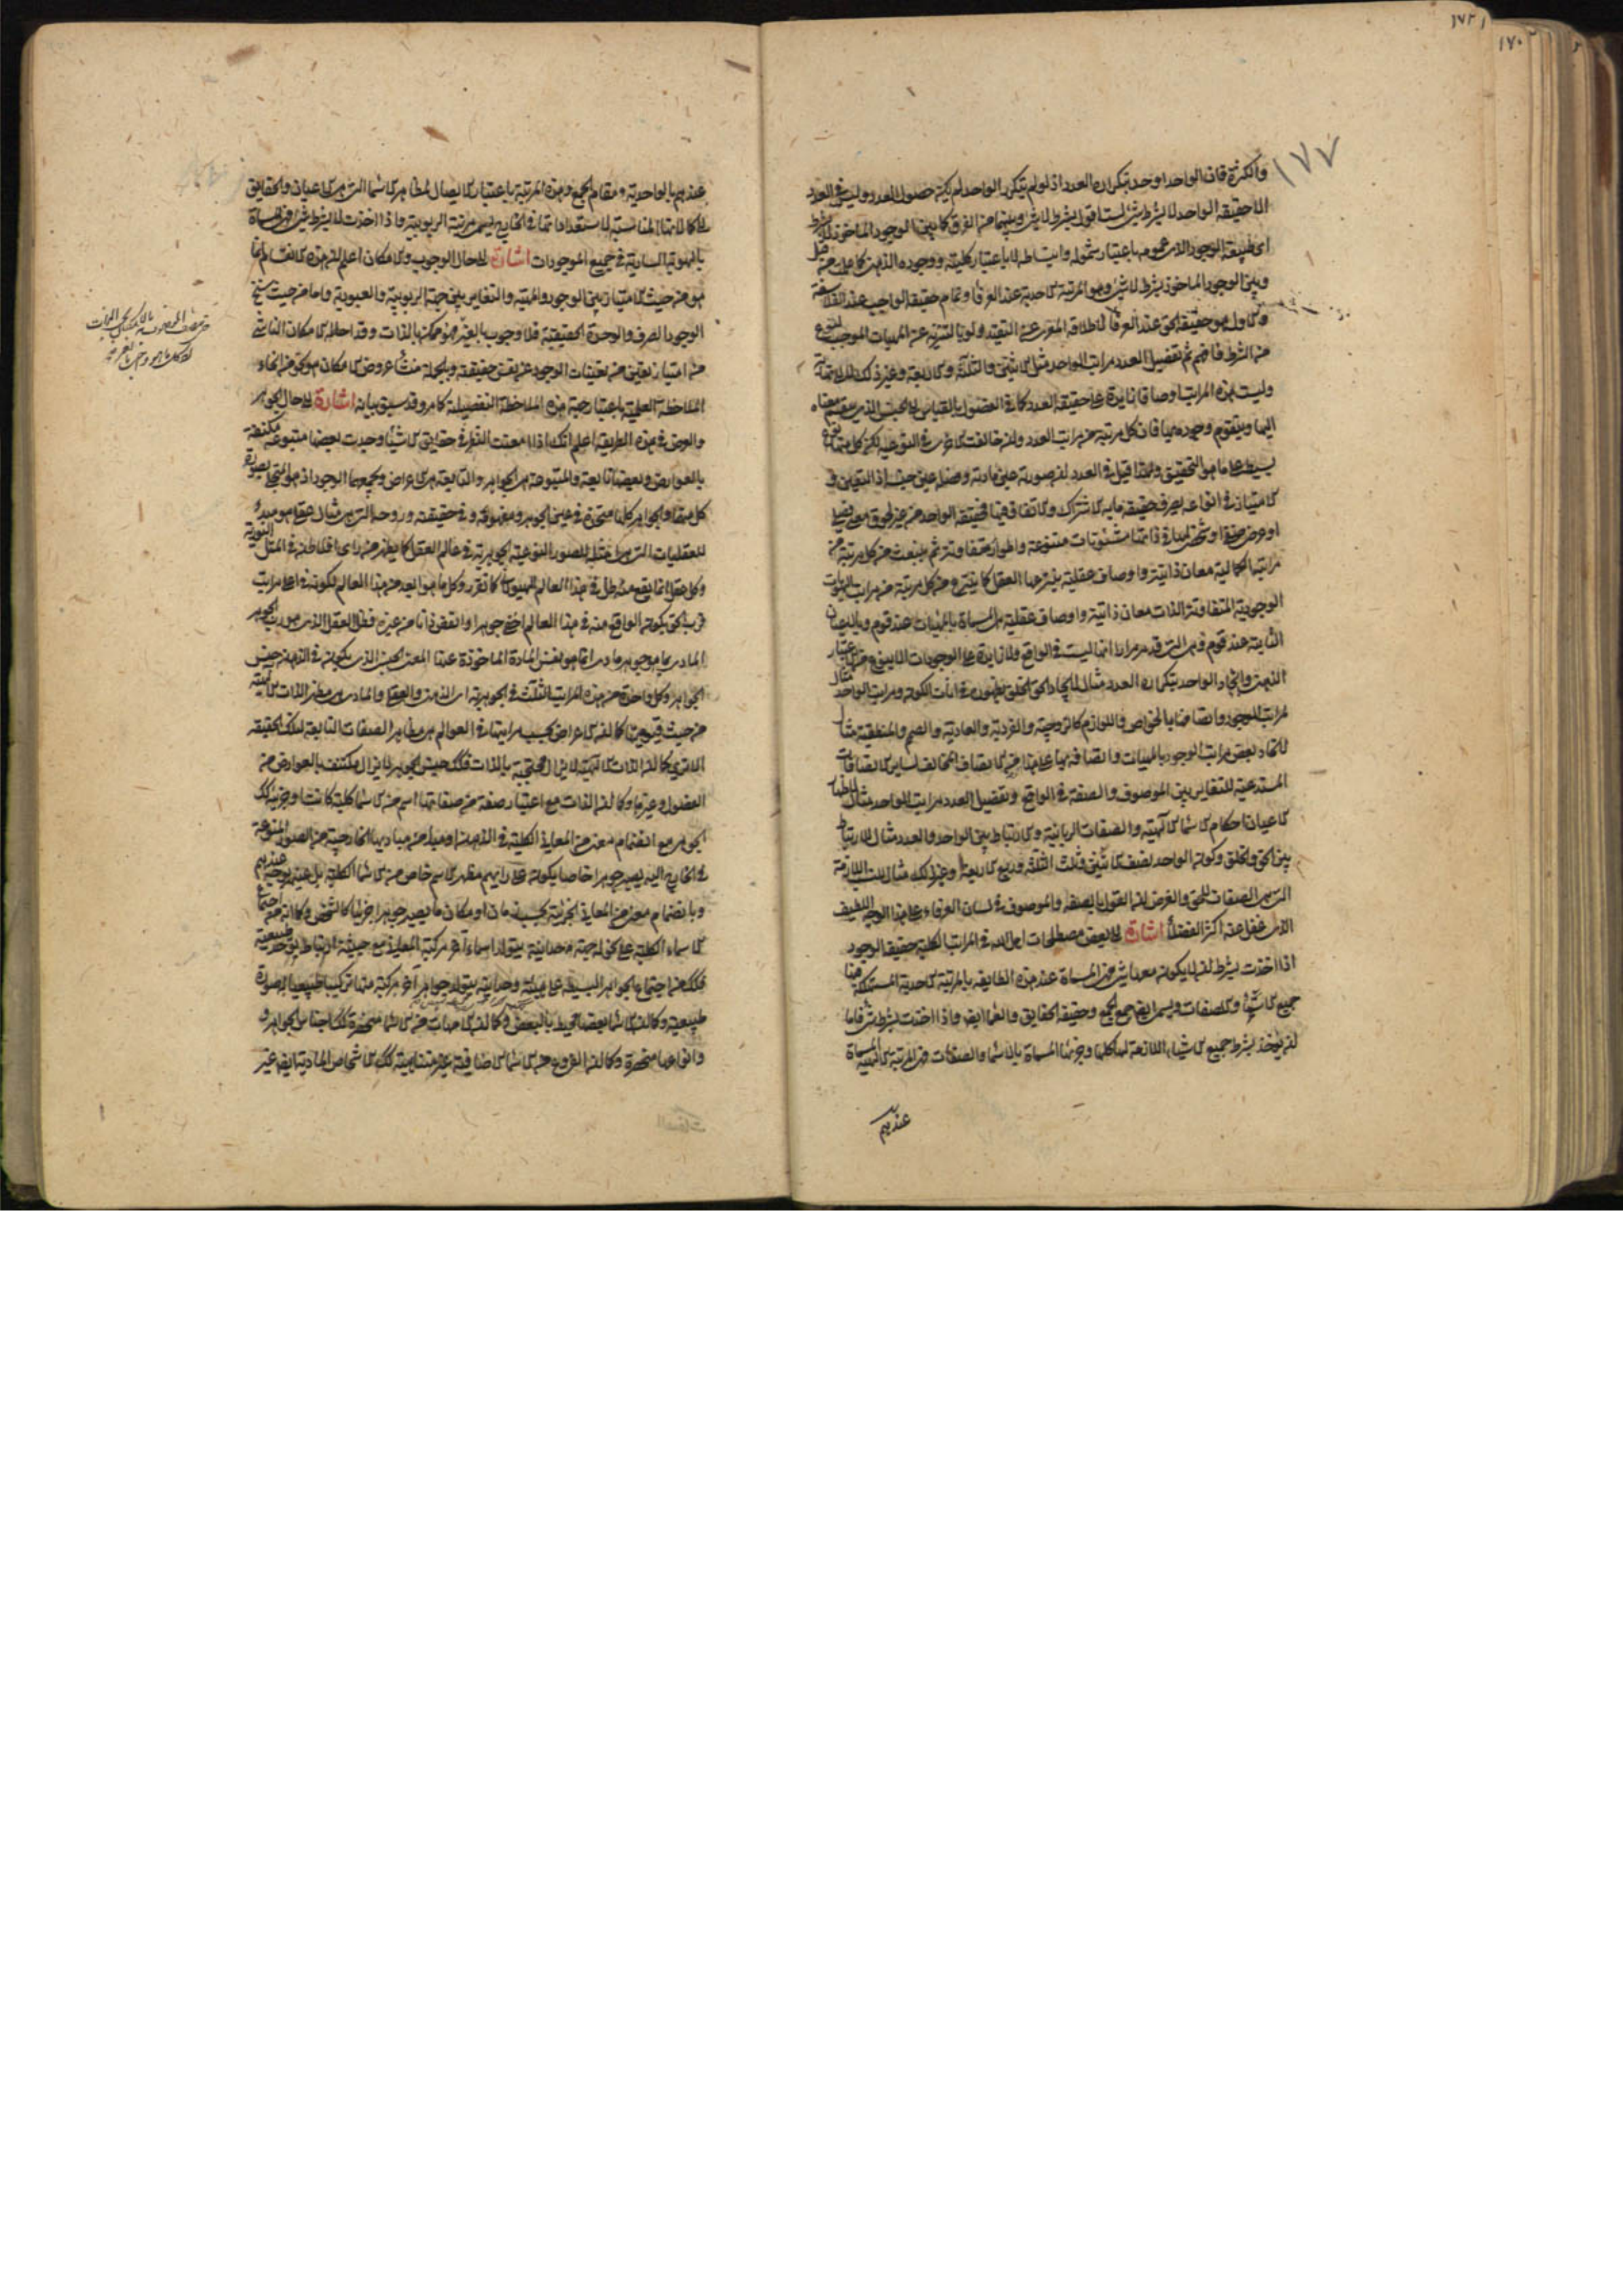 ١٧٢
١٧٠
١٧٧
والكثرة فان الواحد اوجد بتكراره العدد اذ لو لم يتكرر الواحد لم يكن حصول العدد وليس فى العدد
الا حقيقة الواحد لا بشرط شئ لست اقول بشرط لا شئ وبينهما من الفرق كما بين الوجود الماخوذ لا بشرط
اى طبيعة الوجود الذى عمومه باعتبار شموله وانبساطه لا باعتبار كليته ووجوده الذهنى كما علمت من قبل
وبين الوجود الماخوذ بشرط لا شئ وهو المرتبة الاحدية عند العرفا وتمام حقيقة الواجب عند الفلاسفة
والاول هو حقيقة الحق عند العرفا لاطلاقه المعرى عن التقييد ولو بالتنزيه عن المهيات الموجب لنوع
من الشرط فافهم ثم تفصيل العدد مراتب الواحد مثل الاثنين والثلثة والاربعة وغير ذلك الى لا نهاية
وليست هذه المراتب اوصافا زايدة على حقيقة العدد كما فى الفصول بالقياس الى الجنس الذى ينقسم معناه
اليها ويتقوم وجوده بها فان كل مرتبة من مراتب العدد وان خالفت الاخرى فى النوعية لكن كل منها نوع
بسيط على ما هو التحقيق ولهذا قيل فى العدد ان صورته عين مادته وفصله عين جنسه اذ التعين و
الامتياز فى انواعه بصرف حقيقة ما به الاشتراك والاتفاق فيها فحقيقة الواحد من غير لحوق معنى فصلى
او عرضى صنفى او شخصى لها فى ذاتها شئونات متنوعة واطوار متفاوتة ثم ينبعث من كل مرتبة من
مراتبه الكمالية معان ذاتية واوصاف عقلية ينتزعها العقل كما ينتزع من كل مرتبة من مراتب الهويات
الوجودية المتفاوتة الذات معان ذاتية واوصاف عقلية هى المسماة بالمهيات عند قوم وبالاعيان
الثابتة عند قوم وهى التى قد مر مرارا انها ليست فى الواقع ولا زايدة على الوجودات الا بنوع من اعتبار
الذهن فايجاد الواحد بتكراره العدد مثال لايجاد الحق الخلق بظهوره فى آيات الكون ومراتب الواحد مثال
لمراتب الوجود واتصافها بالخواص واللوازم كالزوجية والفردية والعادية والصمم والمنطقية مثال
لاتحاد بعض مراتب الوجود بالمهيات واتصافه بها على هذا النحو من الاتصاف المخالف لساير الاتصافات
المستدعية للتغاير بين الموصوف والصفة فى الواقع وتفصيل العدد مراتب الواحد مثال لاظهار
الاعيان احكام الاسما الالهية والصفات الربانية والارتباط بين الواحد والعدد مثال للارتباط
بين الحق والخلق وكون الواحد نصف الاثنين وثلث الثلثة وربع الاربعة وغير ذلك مثال للنسب اللازمة
التى هى الصفات للحق والغرض ان القول بالصفة والموصوف فى لسان العرفاء على هذا الوجه اللطيف
الذى غفل عنه اكثر الفضلا اشارة الى بعض مصطلحات اهل الله فى المراتب الكلية حقيقة الوجود
اذا اخذت بشرط ان لا يكون معها شئ فهى المسماة عند هذه الطايفة بالمرتبة الاحدية المستهلكة فيها
جميع الاسما والصفات ويسمى ايضا جمع الجمع وحقيقة الحقايق والعما ايضا واذا اخذت بشرط شئ فاما
ان يؤخذ بشرط جميع الاشياء اللازمة لها كليها وجزئيها المسماة بالاسما والصفات فهى المرتبة الالهية المسماة
عندهم
عندهم بالواحدية ومقام الجمع وهذه المرتبة باعتبار الايصال لمظاهر الاسما التى هى الاعيان والحقايق
الى كمالاتها المناسبة لاستعداداتها فى الخارج يسمى مرتبة الربوبية واذا اخذت لا بشرط شئ فهى المسماة
بالهوية السارية فى جميع الموجودات اشارة الى حال الوجوب والامكان اعلم ان هذه الانقسام انما
هو من حيث الامتياز بين الوجود والمهية والتغاير بين جهة الربوبية والعبودية واما من حيث سنخ
الوجود الصرف والوحدة الحقيقية فلا وجوب بالغير حتى ممكن بالذات وقد احاطه الامكان الناشئ
من امتياز تعين من تعينات الوجود عن نفس حقيقته وبالجملة منشأ عروض الامكان هو نحو من انحاء
الملاحظة العلمية باعتبار جهة هذه الملاحظة التفصيلية كما مر وقد سبق بيانه اشارة الى حال الجوهر
والعرض فى هذه الطريقة اعلم انك اذا امعنت النظر فى حقايق الاشيا وجدت بعضها متبوعة مكتنفة
بالعوارض وبعضها تابعة والمتبوعة هى الجواهر والتابعة هى الاعراض ويجمعهما الوجود اذ هو المتجلى بصورة
كل منهما والجواهر كلها متحدة فى عين الجوهر ومفهومه وفى حقيقته وروحه التى هى مثال عقلى هو مبدء
للعقليات التى هى امثلة للصور النوعية الجوهرية فى عالم العقل كما يظهر من راى افلاطن فى المثل النورية
وكل عقل انما يقع منه ظل فى هذا العالم الهيولانى كما تقرر وكل ما هو ابعد من هذا العالم لكونه فى اعلى مراتب
قرب الحق يكون الواقع منه فى هذا العالم اخس جوهرا وانقص ذاتا من غيره فظل العقل الذى هو رب الجوهر
المادى بما هو جوهر مادى انما هو نفس المادة الماخوذة عنها المعنى الجنسى الذى يكون فى الذهن جنس
الجواهر وكل واحدة من هذه المراتب الثلث فى الجوهرية اى الذهنى والعقلى والمادى هى مظهر الذات الالهية
من حيث قيوميتها كما ان الاعراض بحسب مراتبها فى العوالم هى مظاهر الصفات التابعة لتلك الحقيقة
الا ترى كما ان الذات الالهية لا يزال محتجبة بالذات فكذلك جنس الجوهر لا يزال مكتنف بالعوارض من
الفصول وغيرها وكما ان الذات مع اعتبار صفة من صفاتها اسم من الاسما كلية كانت او جزئية كذلك
الجوهر مع انضمام معنى من المعانى الكلية فى الذهن او مبدء من مباديها الخارجية من الصور المنوعة
فى الخارج اليه يصير جوهرا خاصا يكون على رايهم مظهر لاسم خاص من الاسما الكلية بل عينه بوجه عندهم
وبانضمام معنى من المعانى الجزئية بحسب زمان او مكان ما يصير جوهرا جزئيا كالشخص وكما انه من اجتماع
الاسماء الكلية على نحو له جهة وحدانية يتولد اسماء آخر مركبة المعانى مع حيثية ارتباط يوحد طبيعية
فكذلك من اجتماع الجواهر البسيطة على هيئة وحدانية يتولد جواهر آخر مركبة منها تركيبا طبيعيا له صورة
طبيعية وكما ان الاسما بعضها محيط بالبعض وكما ان الامهات من الاسما منحصرة كذلك اجناس الجواهر و
وانواعها منحصرة وكما ان الفروع من الاسما الاضافية غير متناهية كذلك الاشخاص المادية ايضا غير